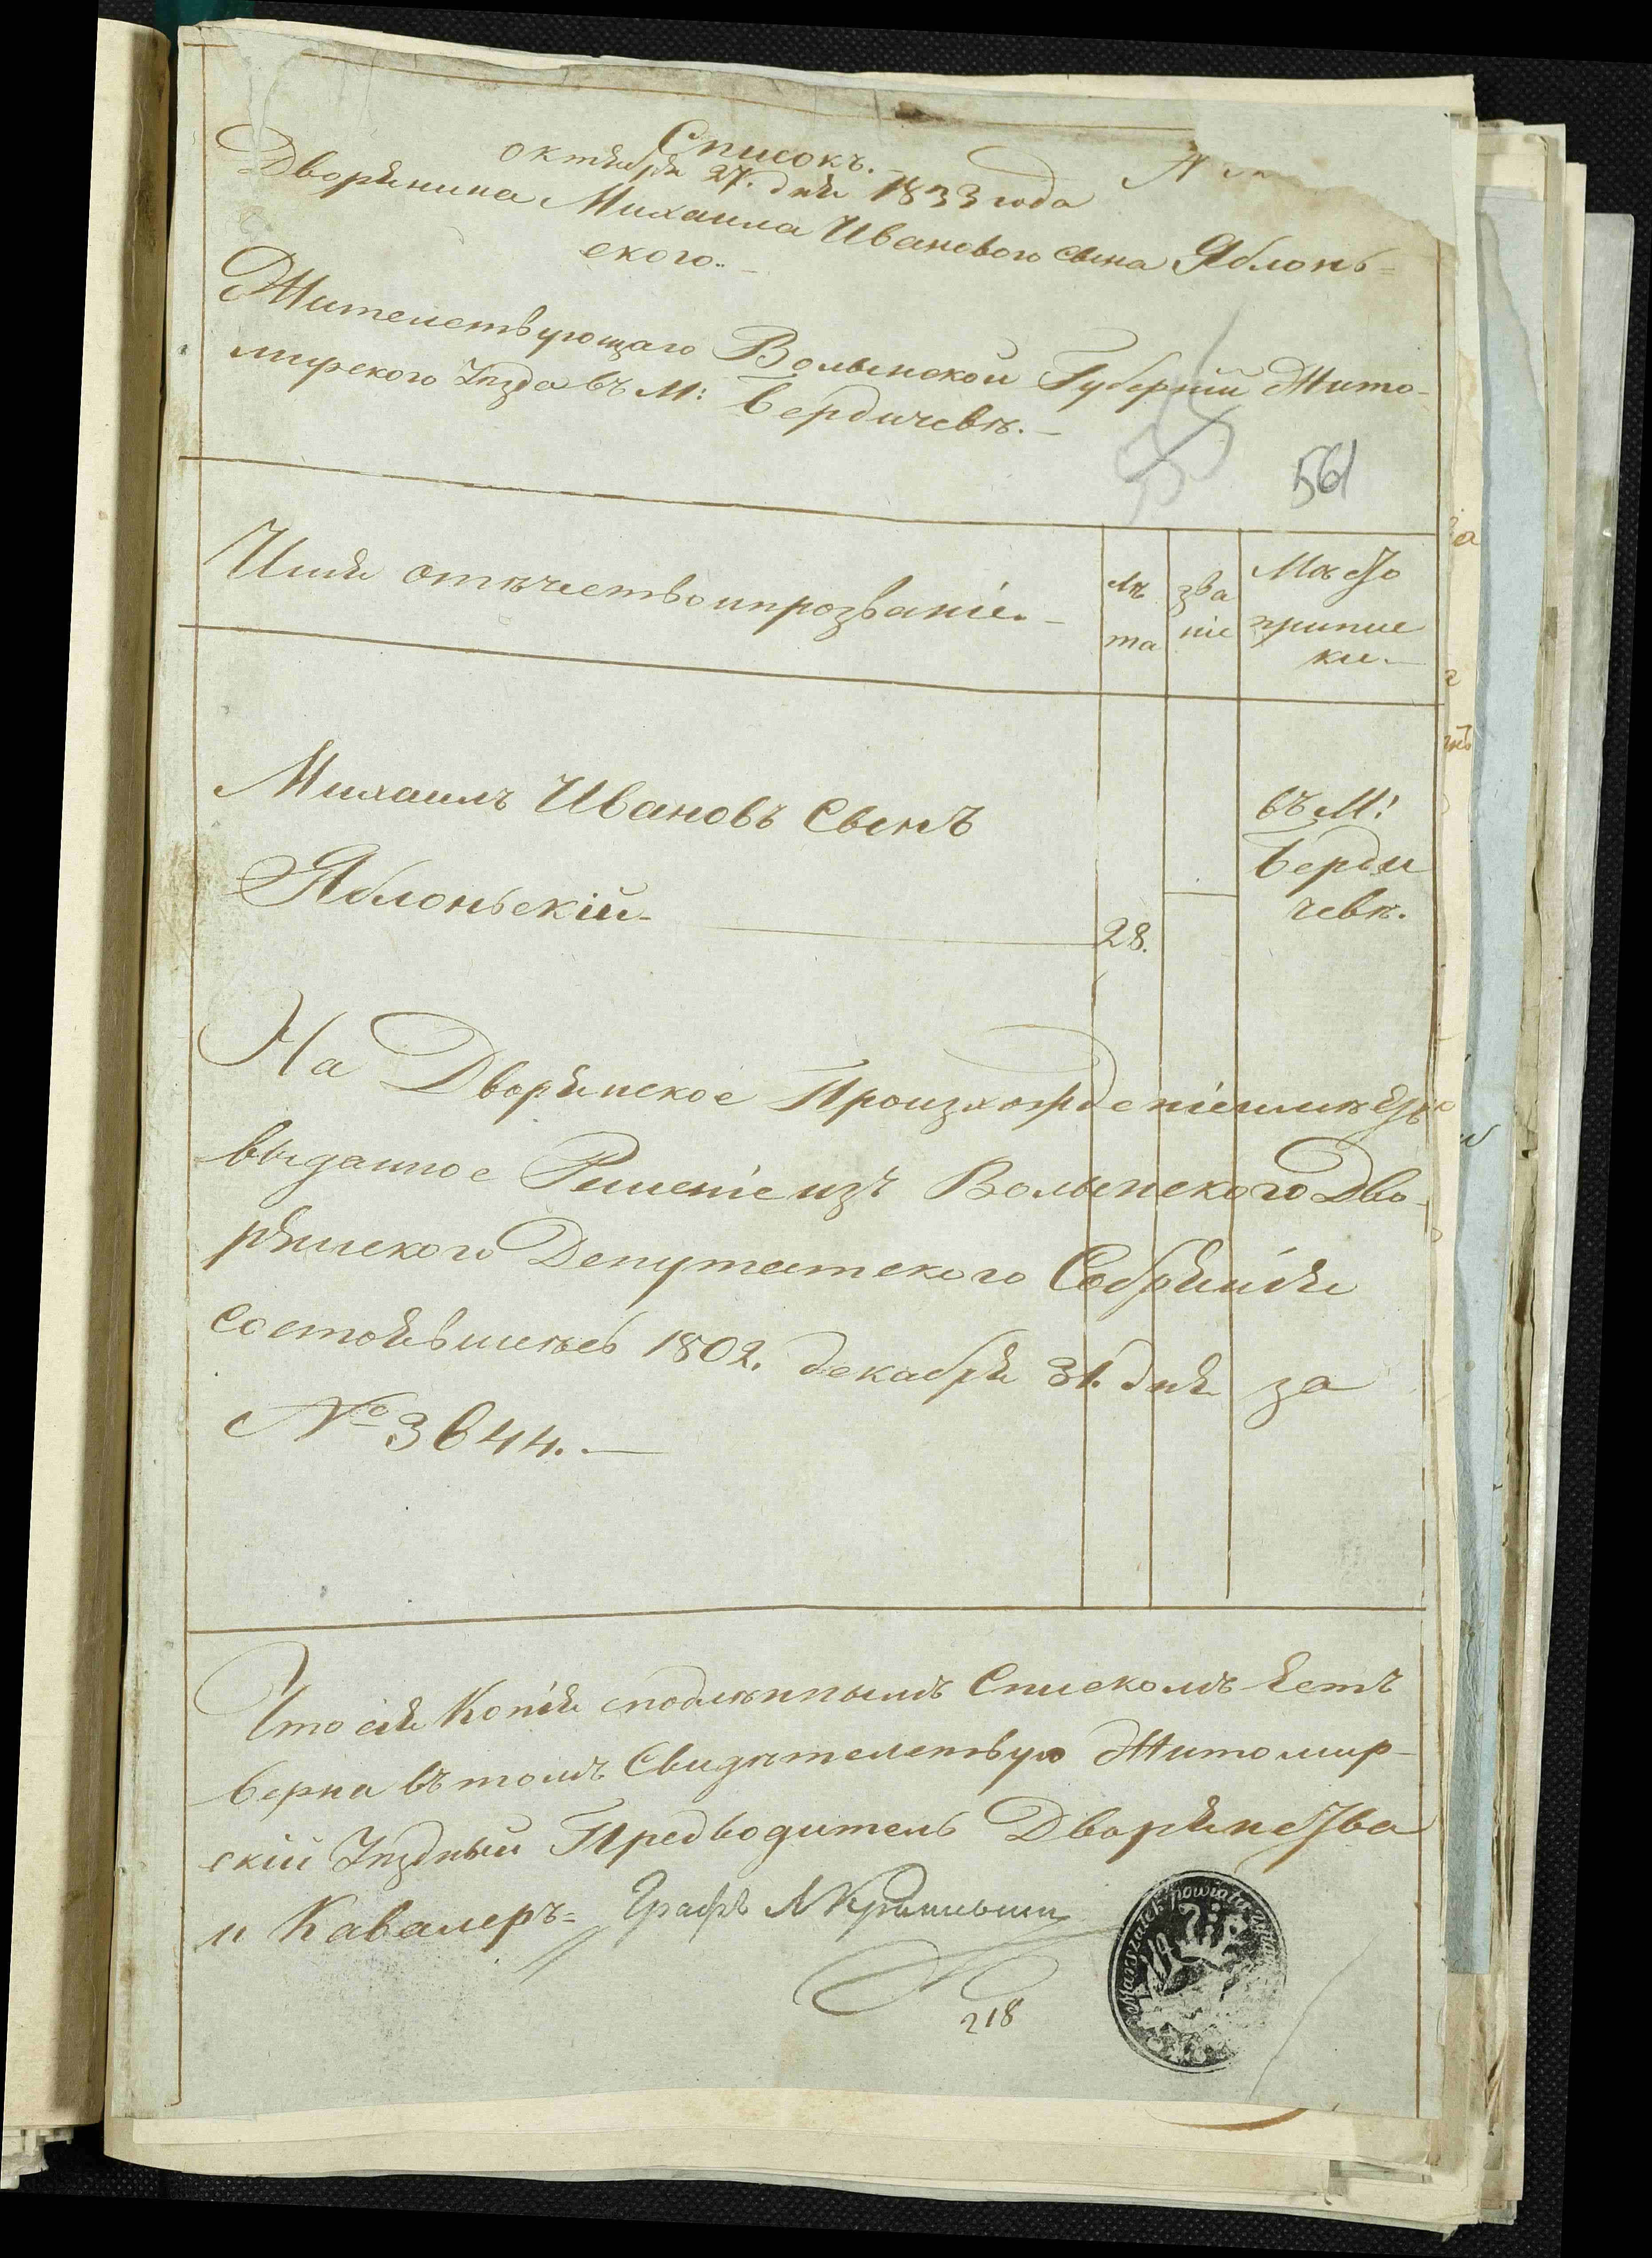 Списокъ.
октября 27. дня 1833 года
Дворянина Михаила Иванового сына Яблонь=
ского.
Жителствующаго Волынской Губерніи Жито-
мирского Уѣзда въ М: Бердичевѣ.
561
Имя отѣчество и прозваніе.
лѣ
та
зва
ніе
Мѣсто
припис
ки.
Михаилъ Ивановъ Сынъ
Яблоньскій
28.
въ М:
Берди
чевѣ.
На Дворянское Произхожденіе имѣетъ
выданное Решеніе изъ Волынского Дво-
рянского Депутатского Собранія
состоявшеѣсь 1802. декабря 31. дня за
№ 3644.
Что сія Копія сподлѣннымъ Спискомъ Естъ
верна въ томъ Свидѣтелствую Житомир-
скій Уѣздный Предводитель Дворянства
и Кавалеръ= Графъ
218
Marszałek powiatu